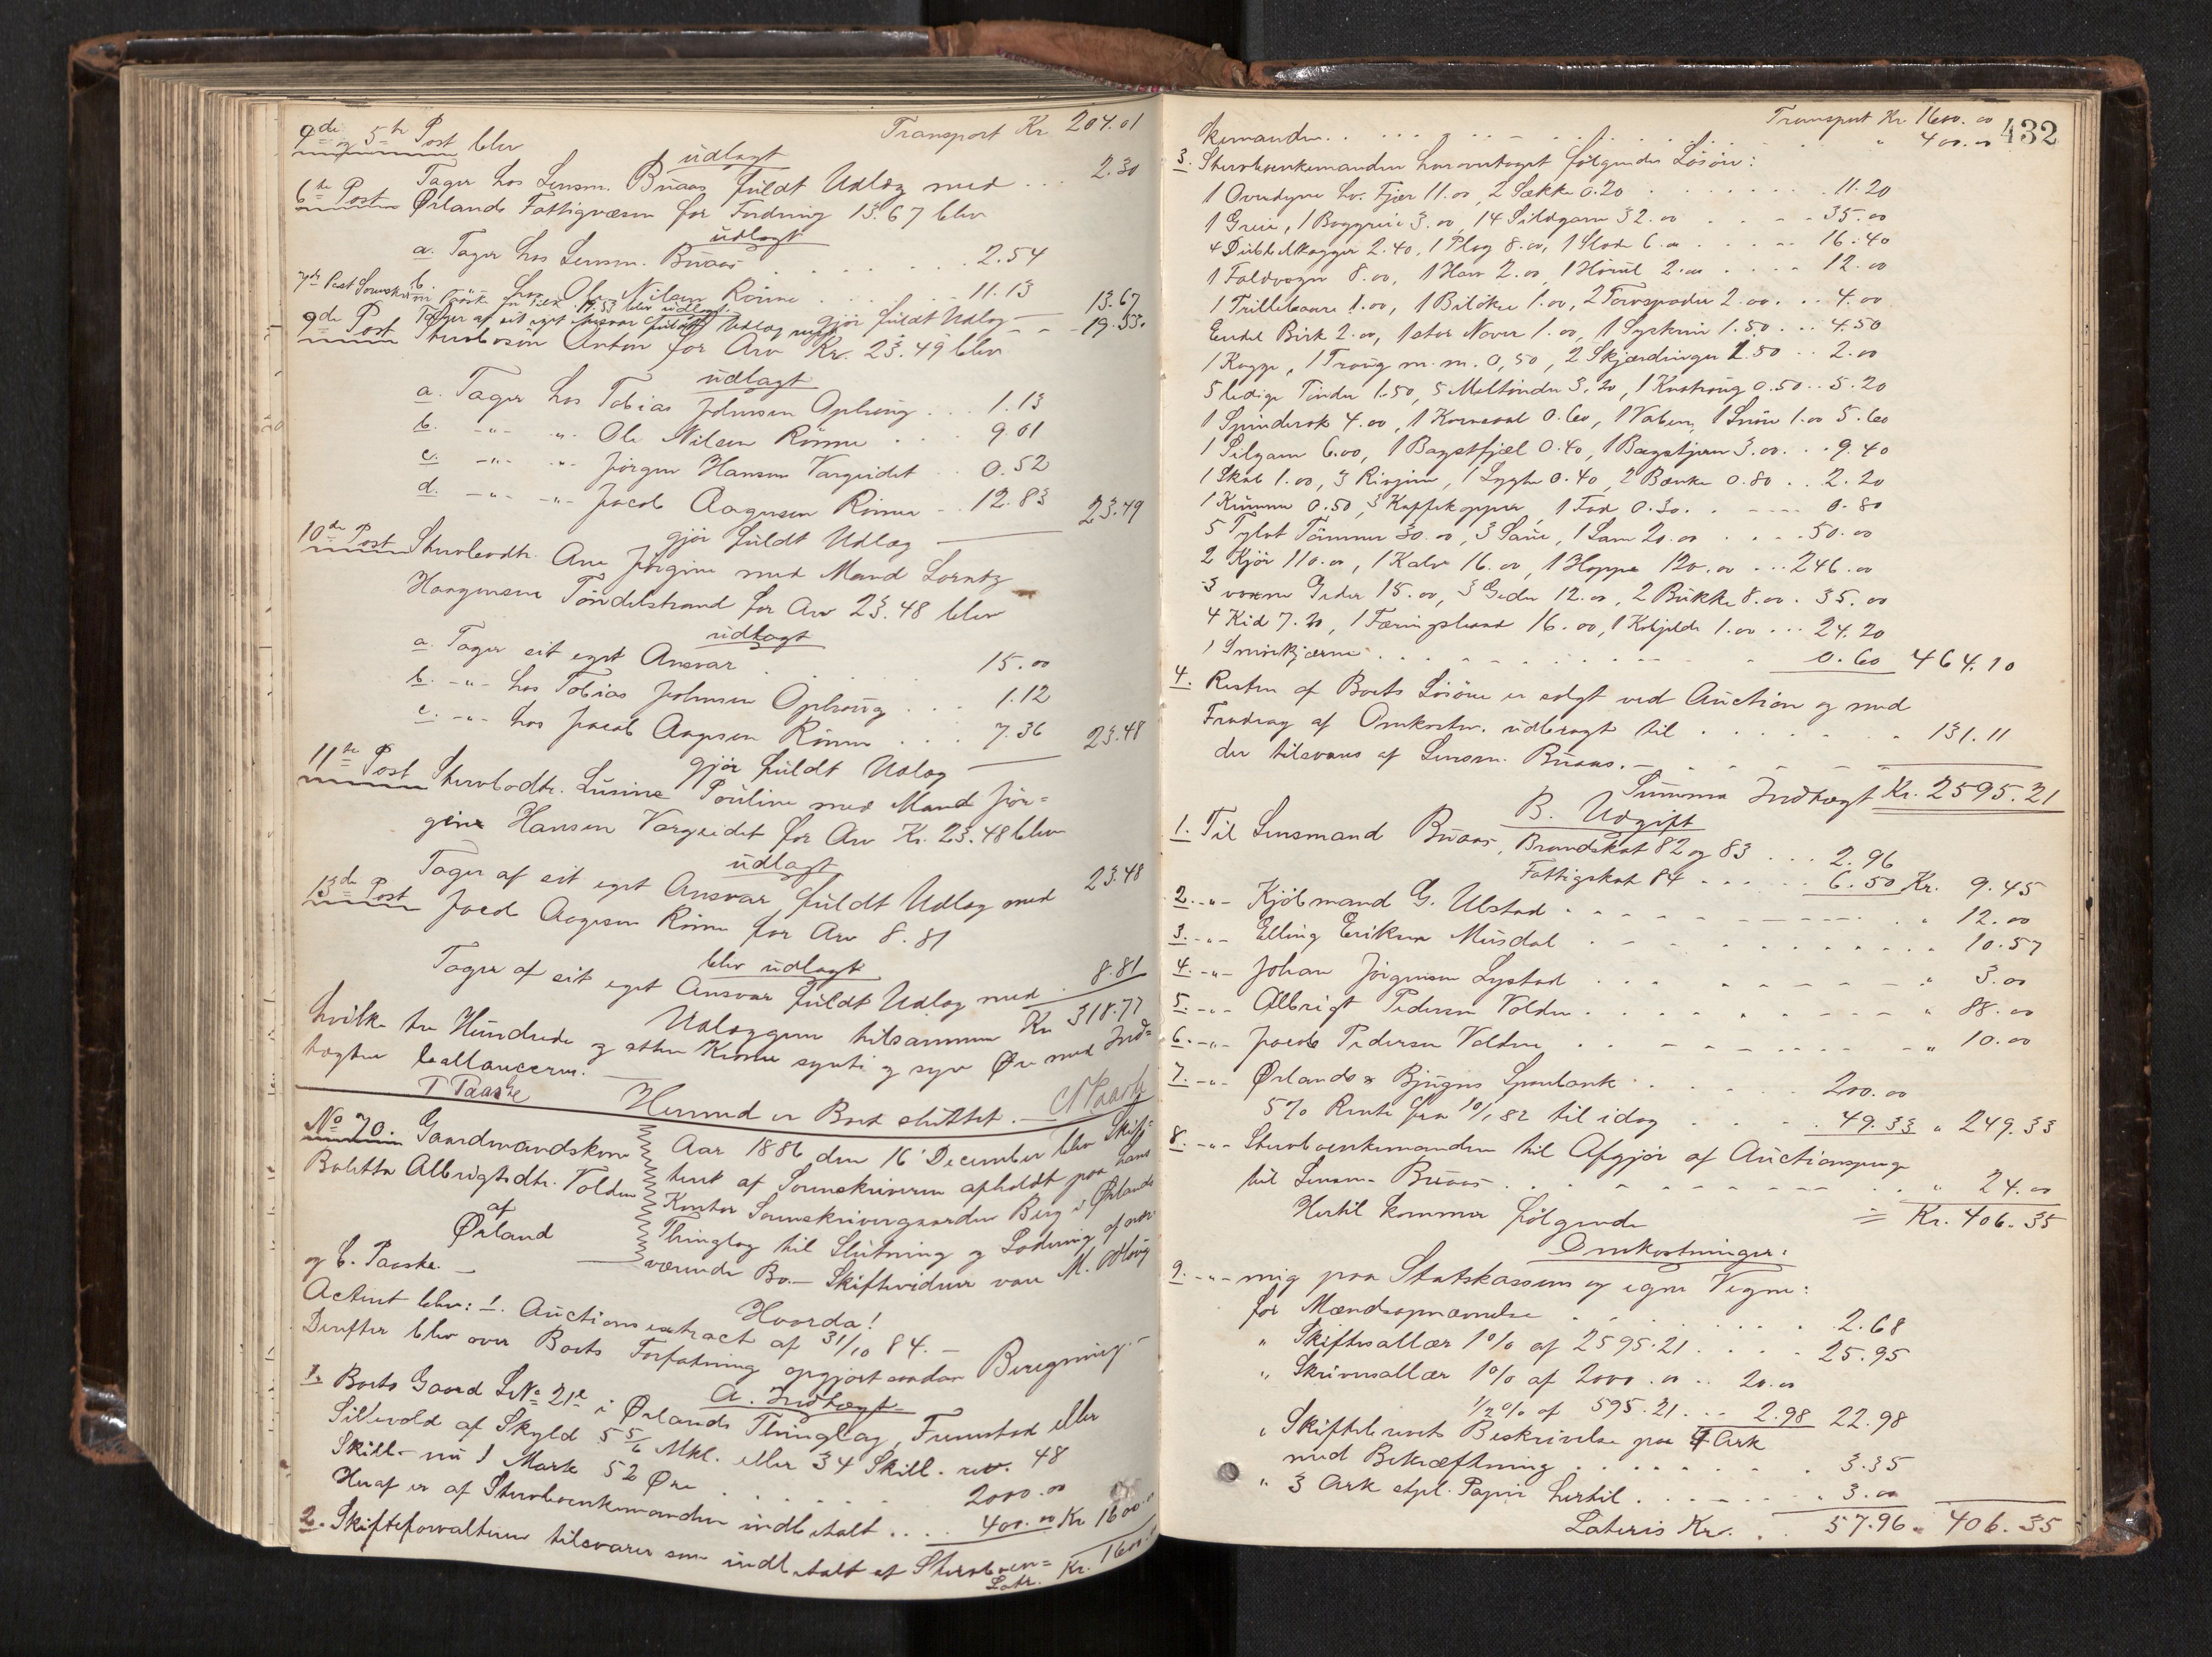 Transport Kr. 204.01
4de og 5te Post blev
udlagt
Tager hos Lensm. Buaas fuldt Udlæg med ... 2.30
6te Post Ørlands Fattigvæsen for Fordring 13.67 blev
udlagt
a. Tager hos Lensm. Buaas . . . . . . . 2.54
b. -"- hos Ole Nilsen Rönne . . . . 11.13
gjör fuldt Udlæg — 13.67
7de Post Sorenskriver Paaske for Tilk. 19.53 blev udlagt:
Tager af eit eget Ansvar fuldt Udlæg med - - - 19.53.
9de Post Sterbosön Anton for Arv Kr. 23.49 blev
udlagt
a. Tager hos Tobias Johnsen Ophaug . . . 1.13
b. -"- -"- Ole Nilsen Rönne . . . 9.01
c. -"- -"- Jörgen Hansen Vargeidet . . 0.52
d. -"- -"- Jacob Aagesen Rönne - . 12.83 23.49
gjör fuldt Udlæg —
10de Post Stervbodtr. Ane Jörgine med Mand Lorntz
Haagensen Töndelstrand for Arv 23.48 blev
udlagt
a. Tager eit eget Ansvar . . . . . . 15.00
b. -"- hos Tobias Johnsen Ophaug . . . 1.12
c. -"- hos Jacob Aagesen Rönne . . . 7.36 23.48
gjör fuldt Udlæg —
11te Post Stervbodtr. Lusine Pouline med Mand Jör=
gine Hansen Vargeidet for Arv Kr. 23.48 blev
udlagt
Tager af eit eget Ansvar fuldt Udlæg med 23.48
13de Post Jacob Aagesen Rönne for Arv 8.81
blev udlagt
Tager af eit eget Ansvar fuldt Udlæg med . 8.81
Udlæggene tilsammen Kr. 318.77
hvilke tre Hundrede og atten Kroner sytti og syv Øre med Ind=
tægten ballancerer. —
Hermed er Boet sluttet. —
T Paaske
No 70. Gaardmandskone
Baletta Albrigtsdtr. Volden
af
Ørland
Aar 1886 den 16' December blev Skif=
teret af Sorenskriveren afholdt paa hans
Kontor Sorenskrivergaarden Berg i Ørlands
Thinglag til Slutning og Lodning af nær=
værende Bo. — Skiftevidner vare M. Ophaug
og C. Paaske. —
Hvorda!
Acteret blev: 1. Auctionsextract af 31/10 84. —
Derefter blev over Boets Forfatning opgjort saadan Beregning: —
A. Indtægt
1. Boets Gaard LNo 21e i Ørlands Thinglag, Funnstad eller
Sillevold af Skyld 5 5/6 Mkl. eller 34 Skill. rev. 48
Skill. — nu 1 Mark 52 Øre . . . . . . 2000.00
Heraf er af Stervboenkemanden indbetalt . . . . 400.00 Kr. 1600.00
2. Skifteforvalteren tilsvarer som indbetalt af Stervboen=
Latr. Kr. 1600.00
432
Transport Kr. 1600.00
kemanden. . . . . . . . . . . . " 400.00
3. Stervboenkemanden har overtaget følgende Lösöre:
1 Overdyne hv. Fjær 11.00, 2 Sække 0.20 . . . . . . 11.20
1 Greie, 1 Baggreie 3.00, 14 Sildgarn 32.00 . . . 35.00
4 Dubbelkagger 2.40, 1 Plog 8.00, 1 Slode 6.00 . . . . 16.40
1 Faldvogn 8.00, 1 Harv 2.00, 1 Hörul 2.00 . . . . 12.00
1 Trillebaare 1.00, 1 Bilöxe 1.00, 2 Torvspader 2.00 . . . 4.00
Endel Birk 2.00, 1 stor Naver 1.00, 1 Syskrin 1.50 . . . 4.50
1 Kagge, 1 Traug m. m. 0,50, 2 Skjærdringer 1.50 . . 2.00
5 ledige Tönder 1.50, 5 Meltönder 3.20, 1 Knatraug 0.50 . . 5.20
1 Spinderok 4.00, 1 Kornesal 0.60, 1 Vaben, 1 Snöre 1.00 5.60
1 Silgarn 6.00, 1 Bagstfjæl 0.40, 1 Bagstjern 3.00 . . . 9.40
1 Skab 1.00, 3 Rivjern, 1 Lygte 0.40, 2 Bænke 0.80 . . 2.20
1 Krumme 0.50, 3 Kaffekopper, 1 Fad 0.30. . . . . 0.80
5 Tylvt Tömmer 30.00, 3 Saue, 1 Lam 20.00 . . . . 50.00
2 Kjör 110.00, 1 Kalv 16.00, 1 Hoppe 120.00 . . . 246.00
3 voxne Geder 15.00, 3 Geder 12.00, 2 Bukke 8.00 . 35.00
4 Kid 7.20, 1 Færingsbaad 16.00, 1 Kobjelde 1.00 . . . 24.20
1 Smörkjærne . . . . . . . . . . . 0.60 464.10
4. Resten af Boets Lösöre er solgt ved Auction og med
Fradrag af Omkostn. udbragt til . . . . . . . " 131.11
der tilsvares af Lensm. Buaas. —
Summa Indtægt Kr. 2595.21
B. Udgift
1. Til Lensmand Buaas, Brandskat 82 og 83 . . . 2.96
Fattigskat 84 . . . . . . 6.50 Kr. 9.45
2. -"- Kjöbmand G. Ulstad . . . . . . . . . " 12.00
3. -"- Elling Eriksen Musdal . . . . . . . . " 10.57
4. -"- Johan Jörgensen Lystad . . . . . . . " 3.00
5. -"- Albrigt Pedersen Volden . . . . . . . " 88.00
6. -"- Jacob Pedersen Volden . . . . . . . . " 10.00
7. -"- Ørlands & Bjugns Sparebank . . . . . 200.00
5% Rente fra 10/1 82 til idag . . . . . 49.33 " 249.33
8. -"- Stervboenkemanden til Afgjör af Auctionspenge
til Lensm. Buaas . . . . . . . . . . . " 24.00
Hertil kommer følgende = Kr. 406.35
Omkostninger:
9. -"- mig paa Statskassens og egne Vegne:
for Mændsopnævnelse . . . . . . . . . 2.68
" Skiftesallær 1% af 2595.21 . . . . 25.95
" Skriversallær 1% af 2000.00 . . 20.00
1/2% af 595.21 . . . 2.98 22.98
" Skiftebrevets Beskrivelse paa 4 Ark
med Bekræftning . . . . . . . . . 3.35
" 3 Ark stpl. Papir hertil . . . . . . . 3.00
Lateris Kr. . . 57.96 " 406.35